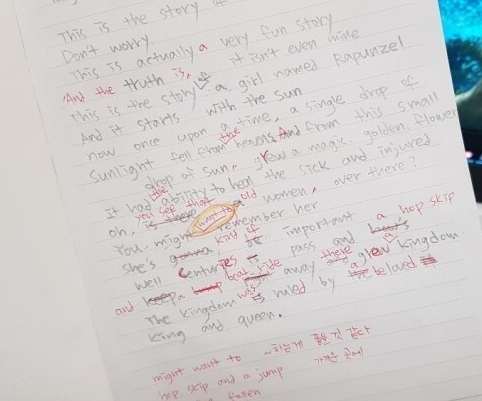 This is the story of
Don't worry
This is actually a very fun story
And the truth is, it isn't even mine
This is the story of a girl named Rapunzel
And it starts with the sun
now once upon a time, a single drop of
sunlight fell from the heavens And from this small
drop of sun, grew a magic golden flower
It had the ability to heal the sick and injured
oh, you see that old women, over there?
You might want to remember her
She's kind of important
Well centuries pass and a hop skip
and a boat ride away there a grew a kingdom.
The kingdom was ruled by a beloved
King and queen.
might want to ~하는게 좋을 것 같다
hop, skip and a jump 가까운 곳에
fallen